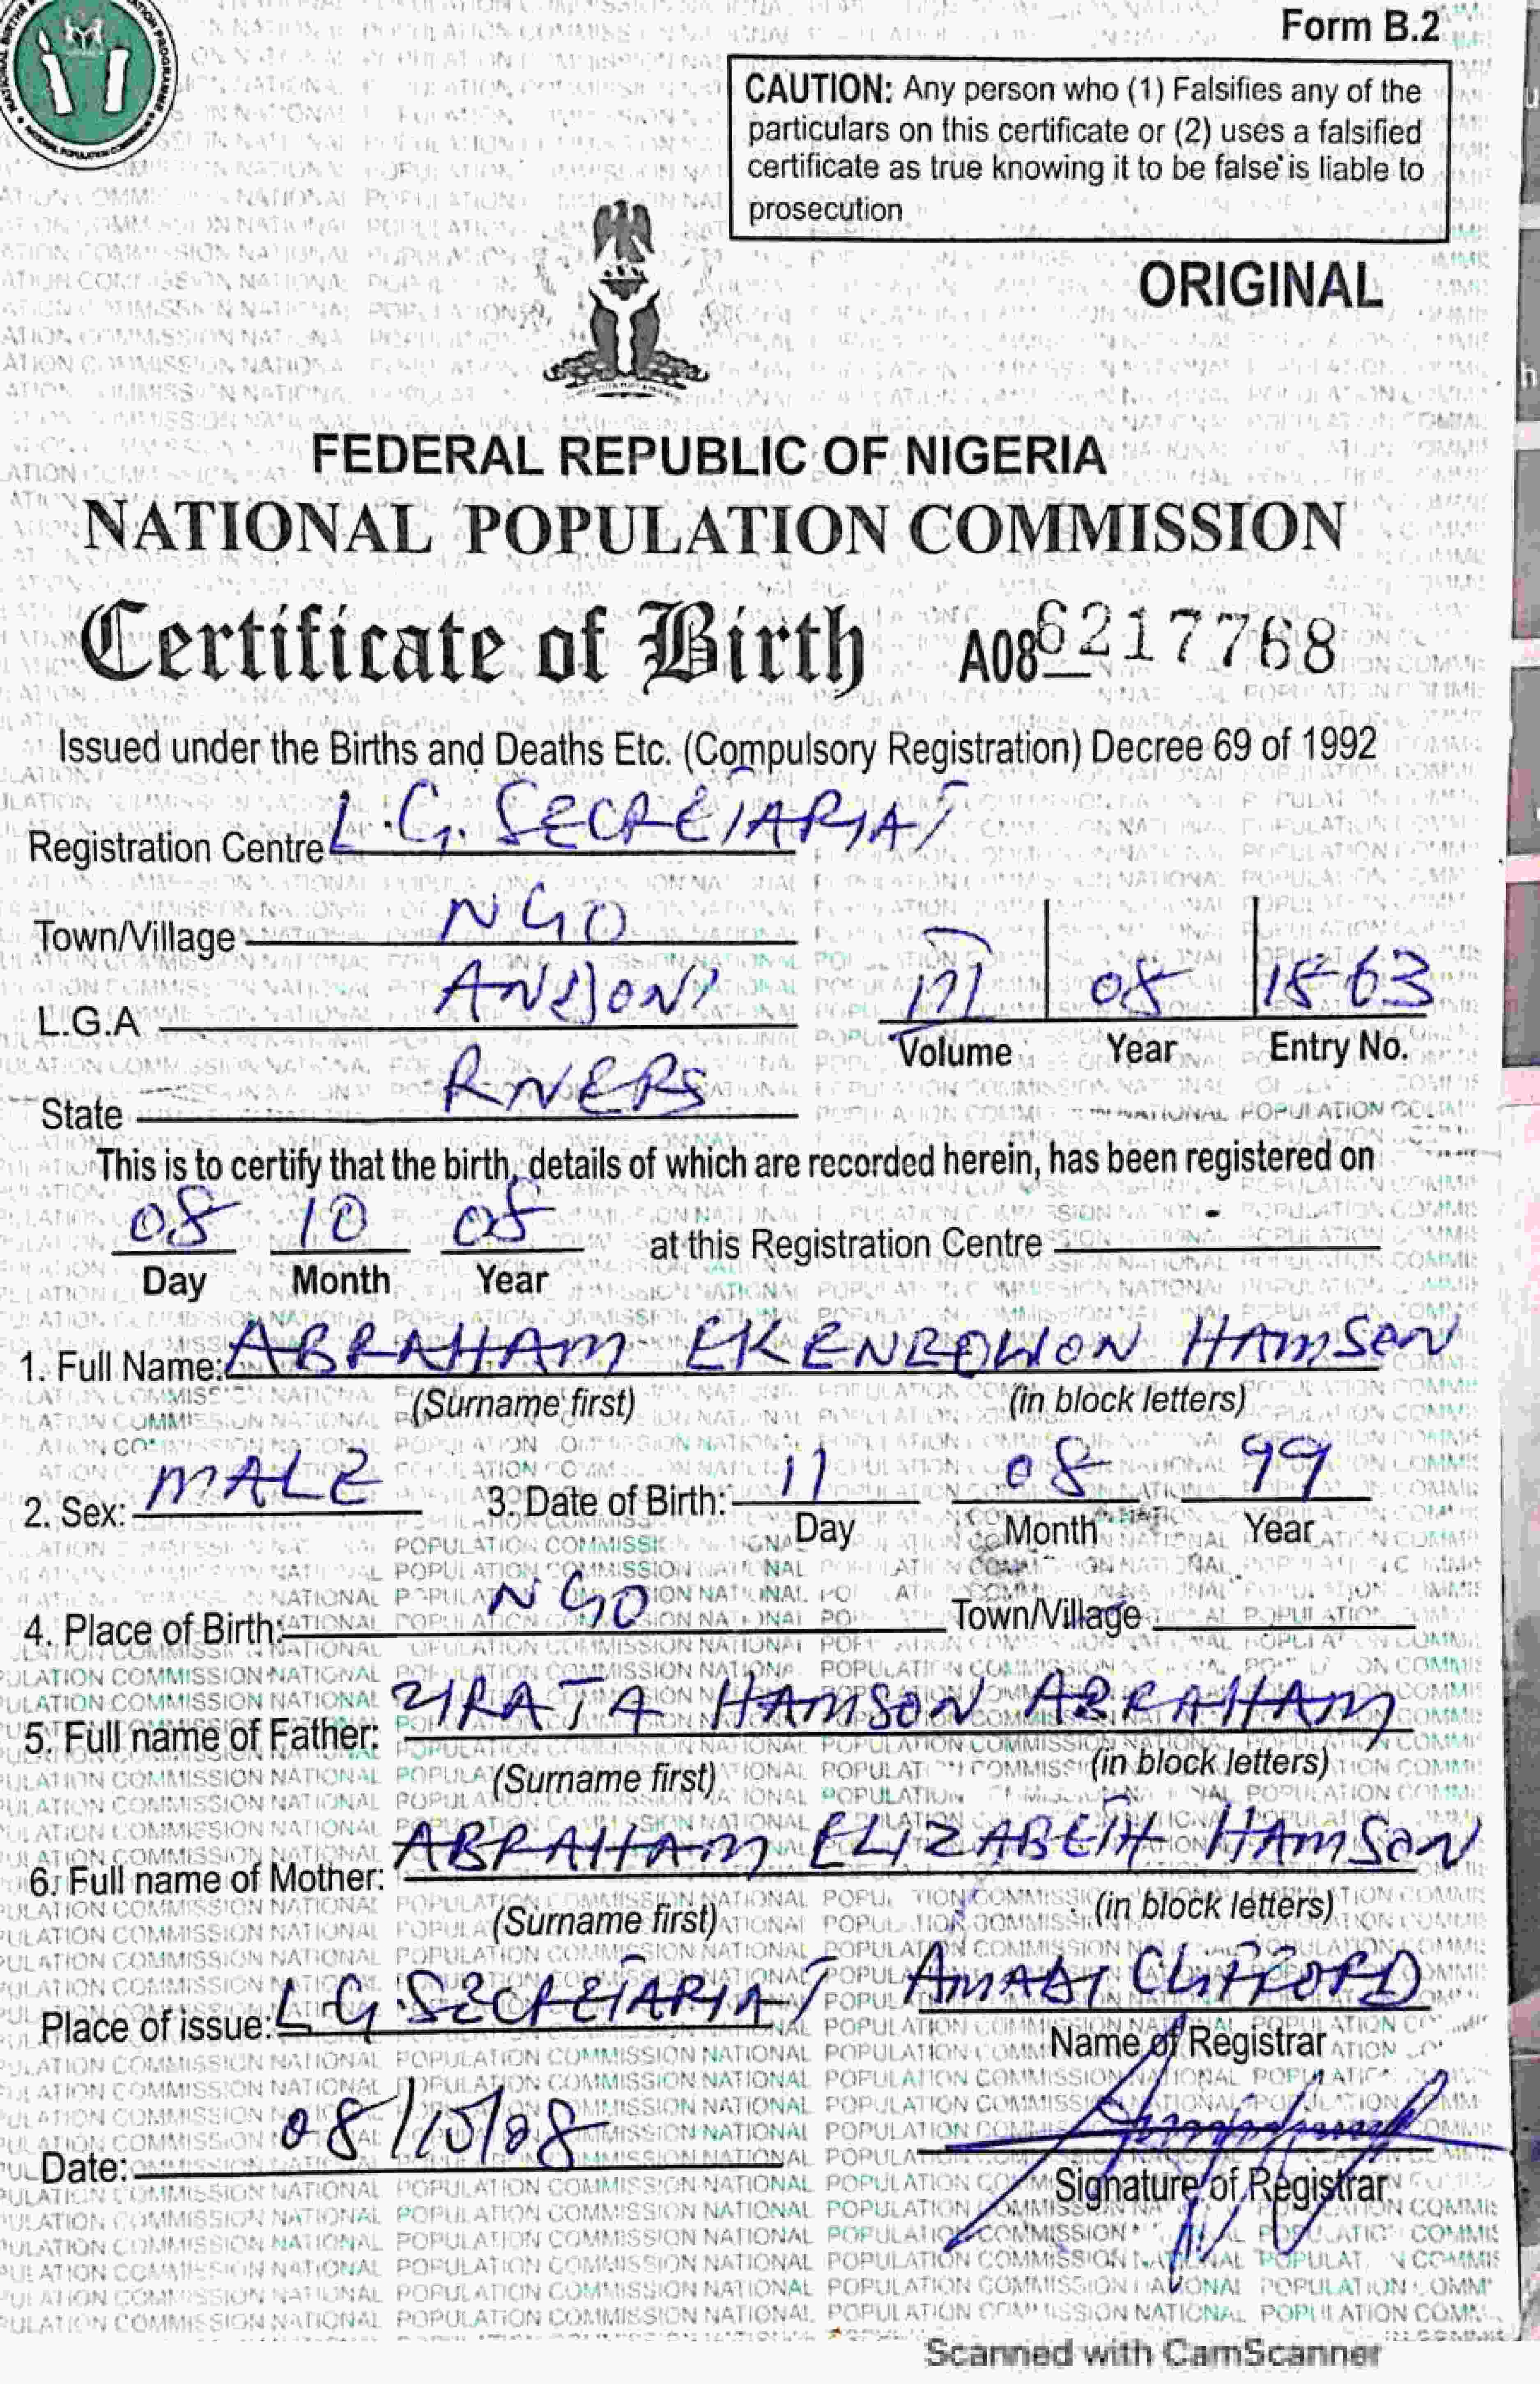 Form B.2
CAUTION: Any person who (1) Falsifies any of the
particulars on this certificate or (2) uses a falsified
certificate as true knowing it to be false is liable to
prosecution
ORIGINAL
FEDERAL REPUBLIC OF NIGERIA
NATIONAL POPULATION COMMISSION
Certificate of Birth A086217768
Issued under the Births and Deaths Etc. (Compulsory Registration) Decree 69 of 1992
Registration Centre L.G. SECRETARIAT
Town/Village NGO
L.G.A ANDONI
State RIVERS
III 08 1863
Volume Year Entry No.
This is to certify that the birth, details of which are recorded herein, has been registered on
08 10 08 at this Registration Centre
Day Month Year
1. Full Name: ABRAHAM HAMSON
(Surname first) (in block letters)
2. Sex: MALE 3. Date of Birth: 11 08 99
Day Month Year
4. Place of Birth: NGO Town/Village
5. Full name of Father: ZIRATA HAMSON ABRAHAM
(Surname first) (in block letters)
6. Full name of Mother: ABRAHAM ELIZABETH HAMSON
(Surname first) (in block letters)
Place of issue: L.G. SECRETARIAT AMADI CLIFFORD
Name of Registrar
Date: 08/10/08
Signature of Registrar
Scanned with CamScanner